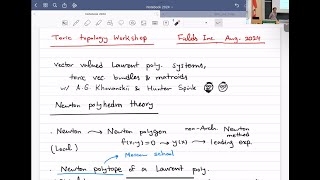 Notebook 2024
Toric topology Workshop Fields Inc. Aug. 2024
Vector valued Laurent poly. systems,
toric vec. bundles & matroids
w/ A.G. Khovanskii & Hunter Spink
Newton polyhedron theory
Newton → Newton polygon non-Arch. Newton method
(Local) f(x,y)=0 → y(x) → leading exp.
Moscow school
Newton polytope of a Laurent poly.